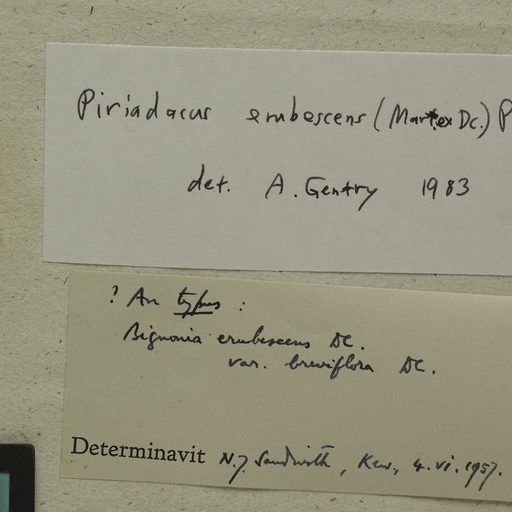 Piriadacus erubescens (Mart. ex DC.) P
det. A. Gentry 1983
? An typus :
Bignonia erubescens DC.
var. breviflora DC.
Determinavit N.Y. Sandwith, Kew, 4.vi.1957.